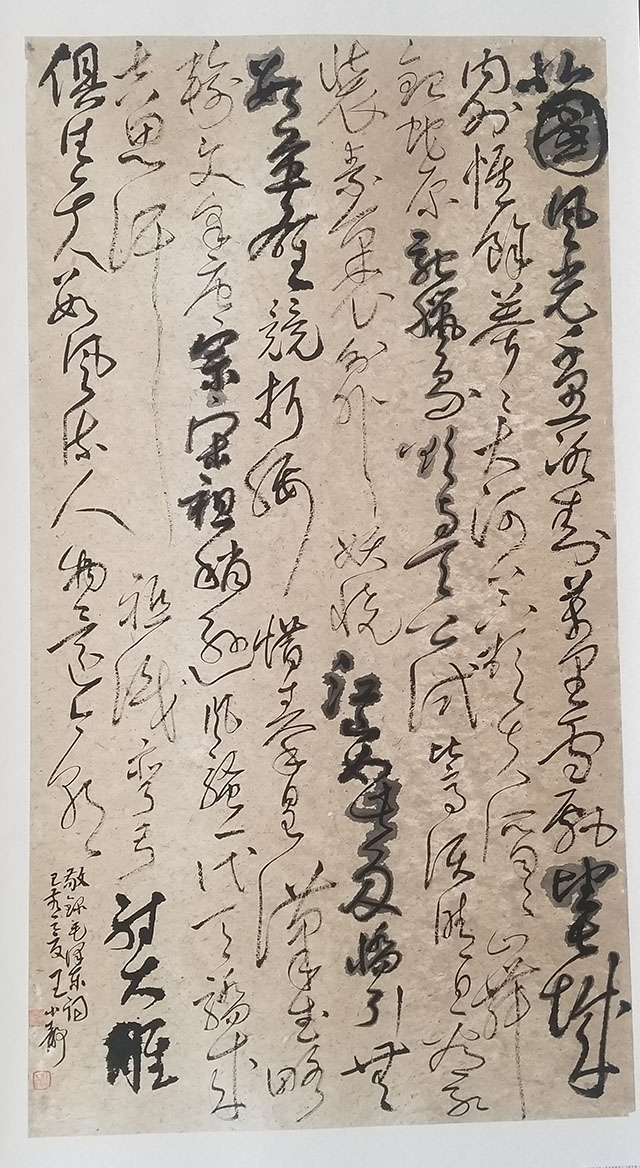 北國風光千里冰封萬里雪飄望長城
內外惟餘莽莽大河上下頓失滔滔山舞
銀蛇原馳臘象欲與天公試比高須晴日看紅
裝素裹分外妖嬈江山如此多嬌引無
數英雄競折腰惜秦皇漢武略
輸文采唐宗宋祖稍遜風騷一代天驕成
吉思汗祇識彎弓射大雕
俱往矣數風流人物還看今朝
敬錄毛澤東詞
己亥之夏王小靜